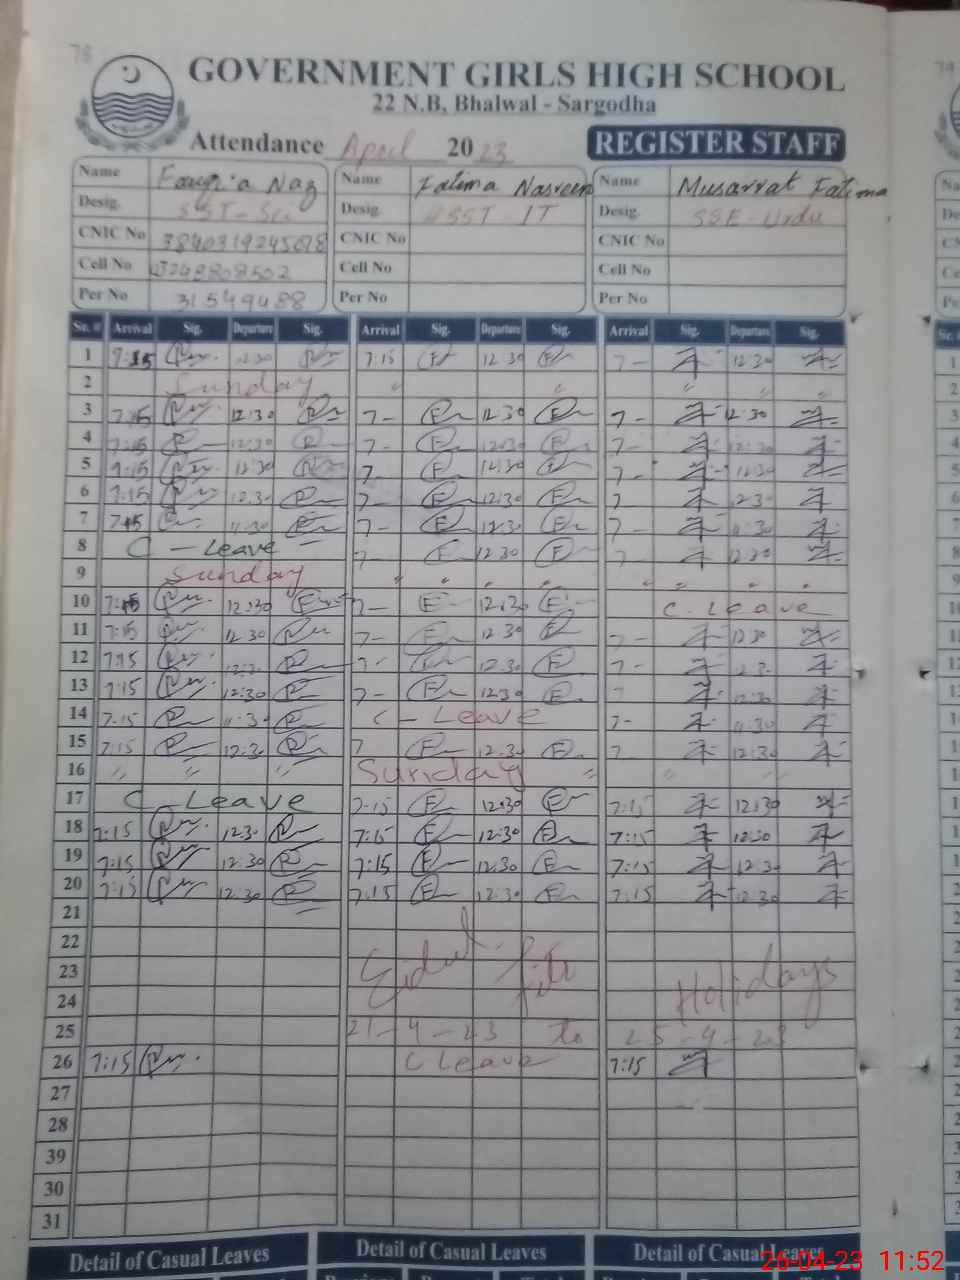 78
GOVERNMENT GIRLS HIGH SCHOOL
22 N.B, Bhalwal - Sargodha
Attendance April 2023 REGISTER STAFF
Name Fouzia Naz Name Fatima Nasreen Name Musarrat Fatima
Desig. SST-Sci Desig. SST-IT Desig. SSE-Urdu
CNIC No CNIC No CNIC No
Cell No Cell No Cell No
Per No 31549488 Per No Per No
Sr. # Arrival Sig. Departure Sig. Arrival Sig. Departure Sig. Arrival Sig. Departure Sig.
1 7:15 12:30 7:15 12:30 7- 12:30
2 Sunday " " " " "
3 7:15 12:30 7- 12:30 7- 12:30
4 7:15 12:30 7- 12:30 7- 12:30
5 7:15 12:30 7 12:30 7- 12:30
6 7:15 12:30 7- 12:30 7 12:30
7 7:15 11:30 7- 12:30 7- 11:30
8 C-Leave 7- 12:30 7- 12:30
9 Sunday " " " " " " " "
10 7:15 12:30 7- 12:30 C.Leave
11 7:15 12:30 7- 12:30 7- 12:30
12 7:15 7- 12:30 7-
13 7:15 12:30 7- 12:30 7 12:30
14 7:15 11:30 C-Leave 7- 11:30
15 7:15 12:30 7 12:30 7 12:30
16 " " " Sunday " " "
17 C-Leave 7:15 12:30 7:15 12:30
18 7:15 12:30 7:15 12:30 7:15 12:30
19 7:15 12:30 7:15 12:30 7:15 12:30
20 7:15 12:30 7:15 12:30 7:15 12:30
21
22
23 Eidul Fitr Holidays
24
25 21-4-23 to 25-4-23
26 7:15 C Leave 7:15
27
28
39
30
31
Detail of Casual Leaves Detail of Casual Leaves Detail of Casual Leaves
26-04-23 11:52